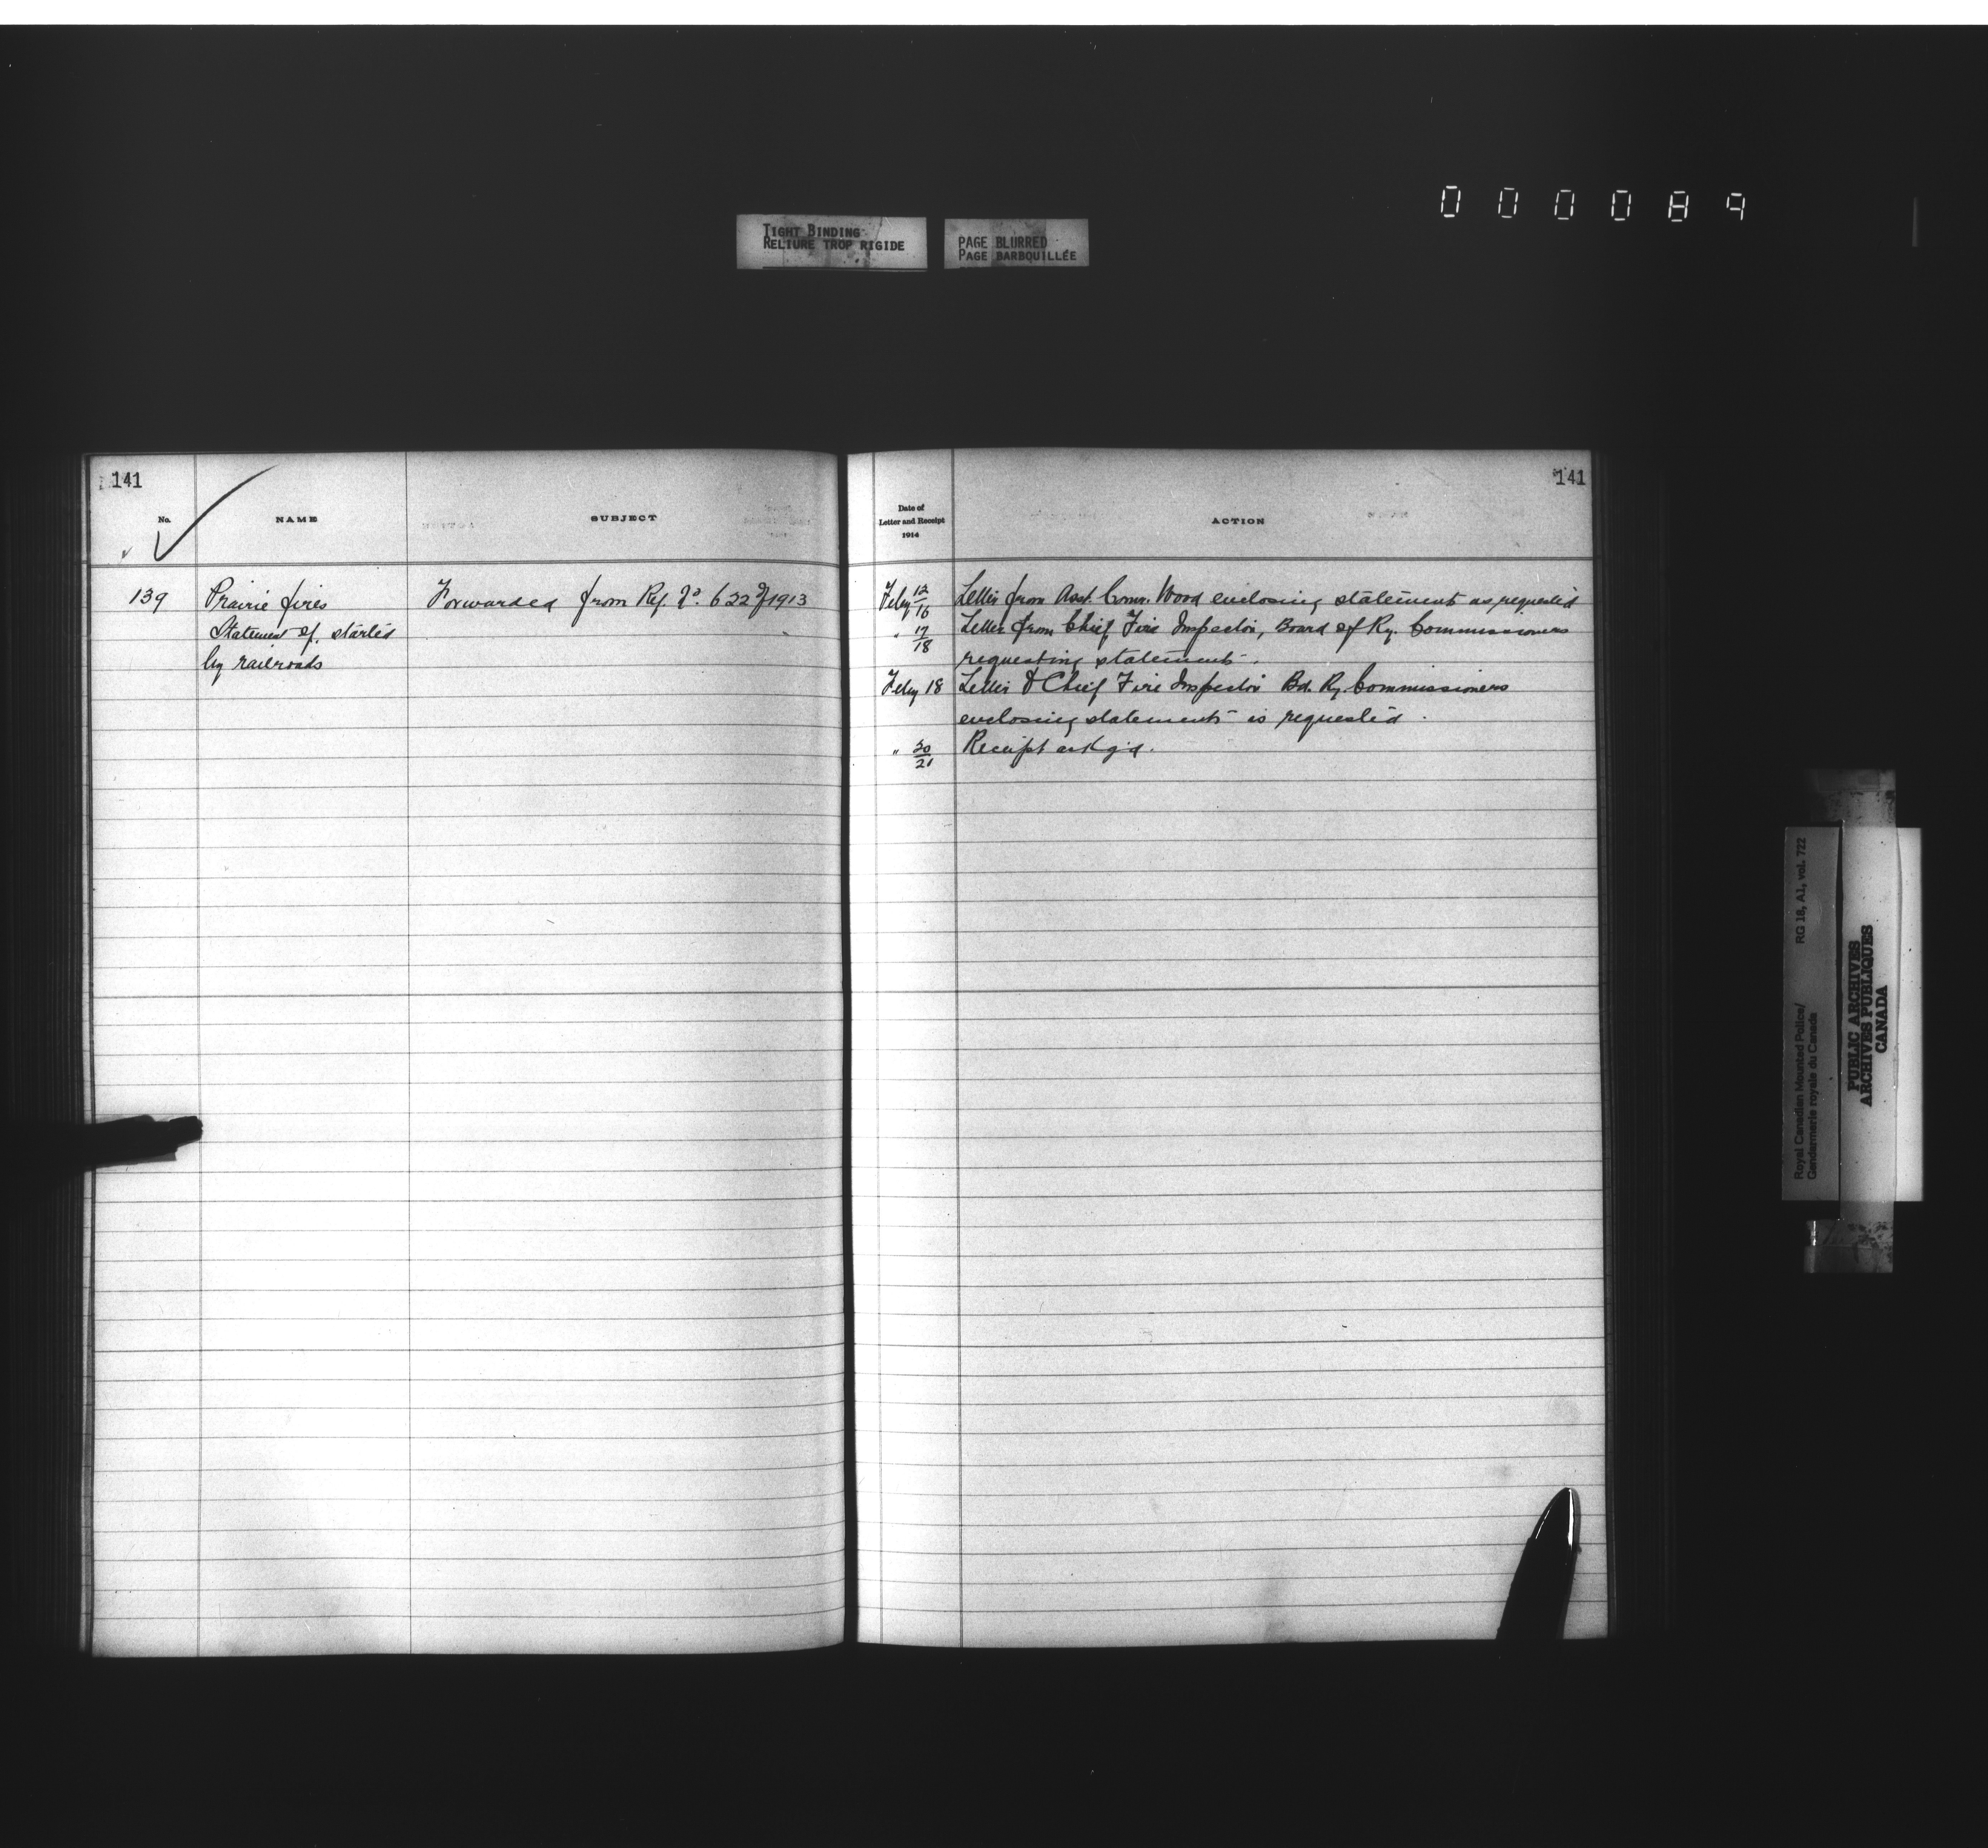 000089
TIGHT BINDING
RELIURE TROP RIGIDE
PAGE BLURRED
PAGE BARBOUILLÉE
141
No.
NAME
SUBJECT
139
Prairie fires
Statement of, started
by railroads
Forwarded from Ref. No. 622 of 1913
141
Date of
Letter and Receipt
1914
ACTION
Feby 12/16 Letter from Asst. Comr. Wood enclosing statement as requested
" 17/18 Letter from Chief Fire Inspector, Board of Ry. Commissioners
requesting statement.
Feby 18 Letter to Chief Fire Inspector Bd. Ry. Commissioners
enclosing statement as requested.
" 20/21 Receipt ackg'd.
Royal Canadian Mounted Police/
Gendarmerie royale du Canada
RG 18, A1, vol. 722
PUBLIC ARCHIVES
ARCHIVES PUBLIQUES
CANADA